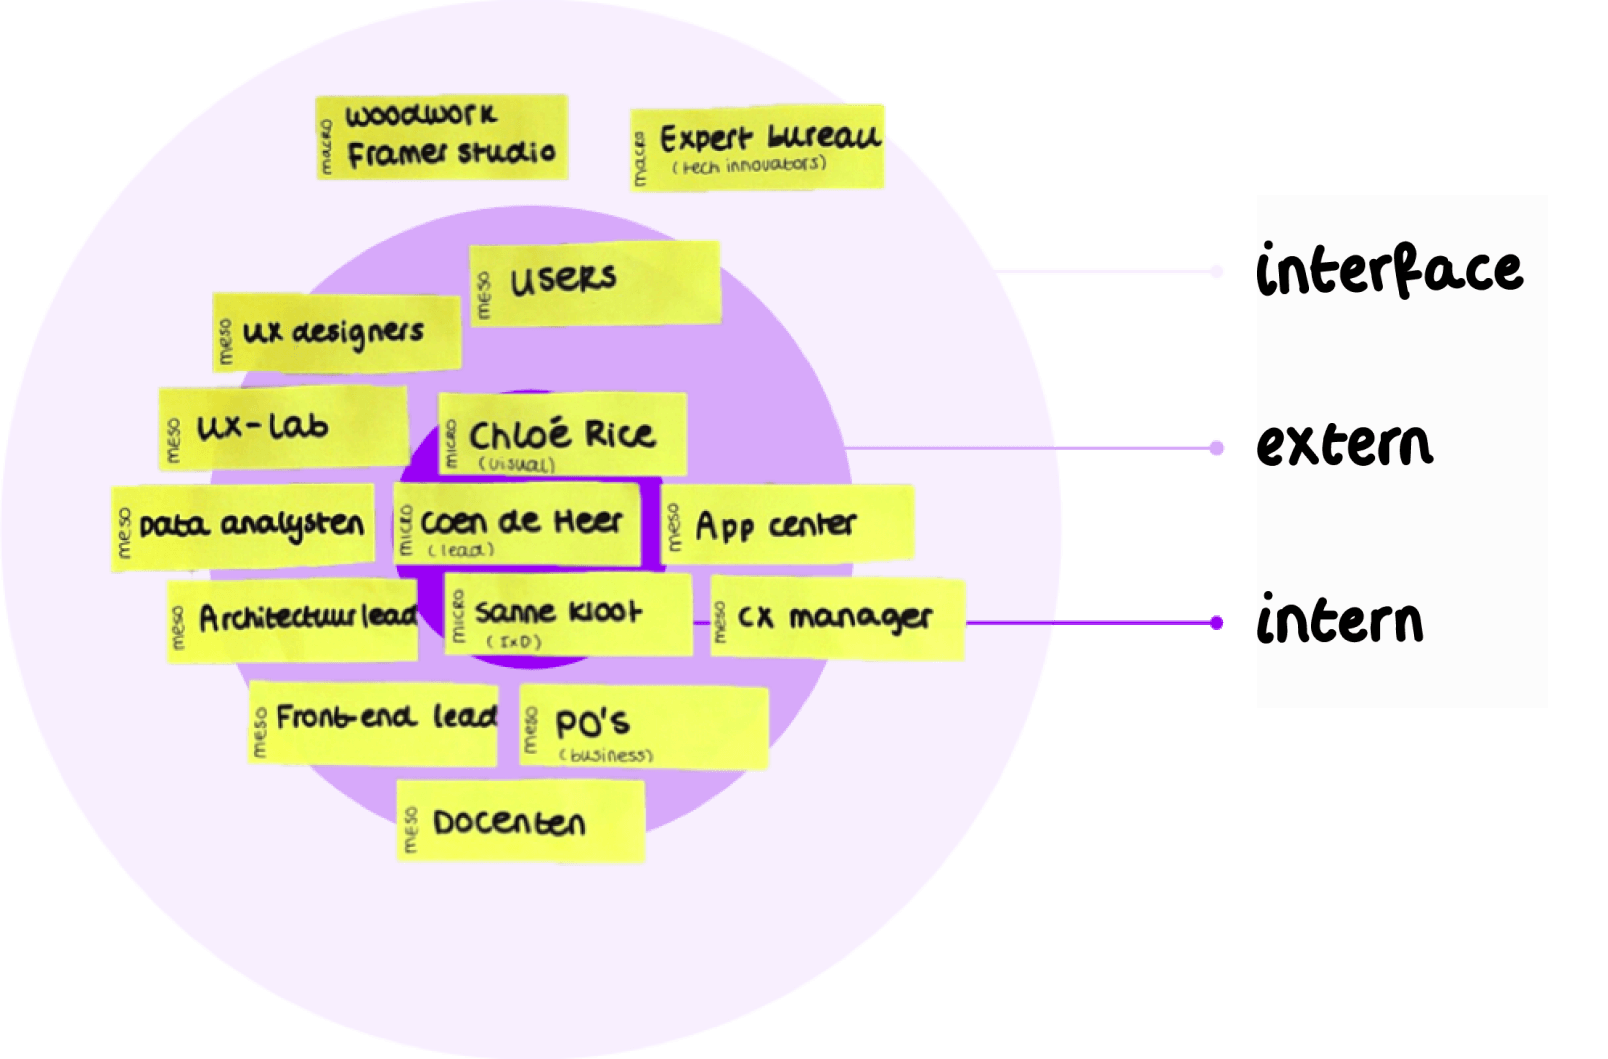 macro
woodwork
Framer studio
macro
Expert bureau
(tech innovators)
meso
users
meso
ux designers
interface
meso
ux-lab
micro
Chloé Rice
(visual)
extern
meso
Data analysten
micro
Coen de Heer
(lead)
meso
App center
meso
Architectuur lead
micro
Sanne Kloot
(IxD)
meso
CX manager
intern
meso
Front-end lead
meso
PO's
(business)
meso
Docenten